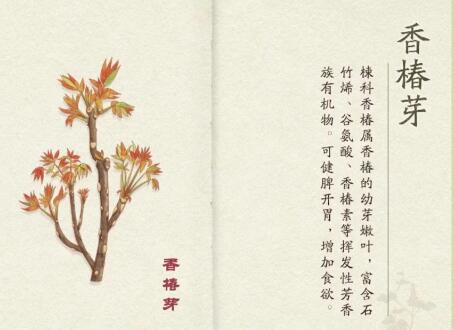 香椿芽
楝科香椿属香椿的幼芽嫩叶，富含石
竹烯、谷氨酸、香椿素等挥发性芳香
族有机物。可健脾开胃，增加食欲。
香椿芽